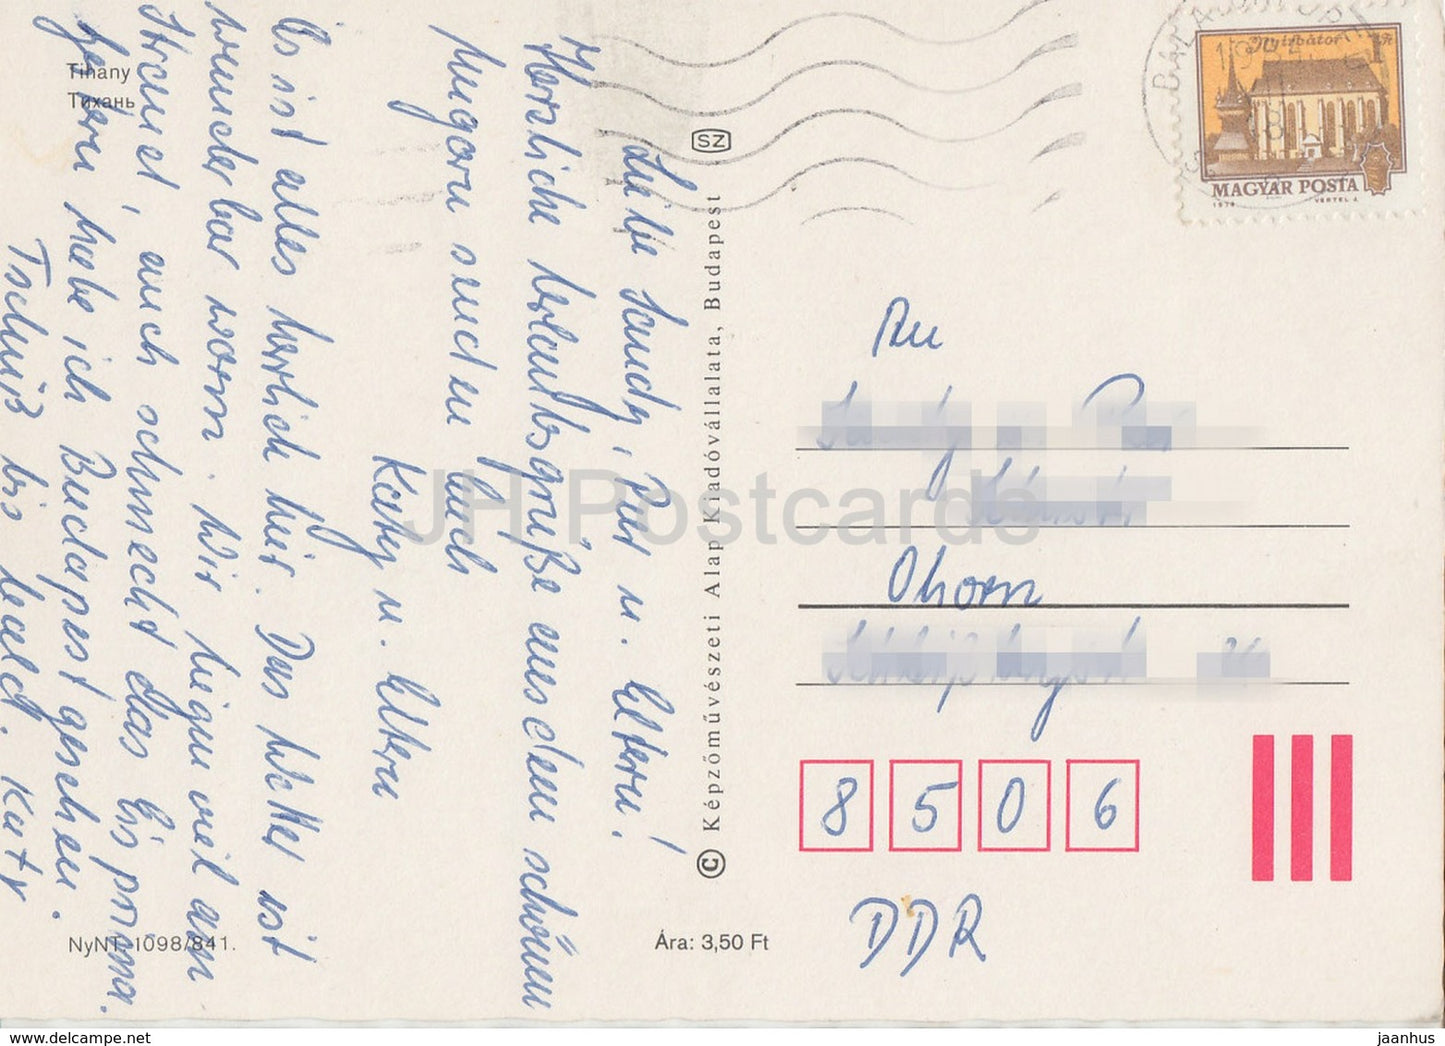 Tihany
Тихань
Liebe Sandy, Pur u. Eltern!
Herzliche Urlaubsgrüße aus dem schönen
Ungarn senden Euch
Katy u. Eltern
Es ist alles herrlich hier. Das Wetter ist
wunderbar warm. Wir liegen viel am
Strand, auch schmeckt das Eis prima.
Gestern habe ich Budapest gesehen.
Tschüß bis bald. Katy
NyNT–1098/841.
Ára: 3,50 Ft
SZ
© Képzőművészeti Alap Kiadóvállalata, Budapest
Nyírbátor
1 Ft
MAGYAR POSTA
1979
VERTEL J.
An
Ohorn
8506
DDR
JH Postcards
jaanhus